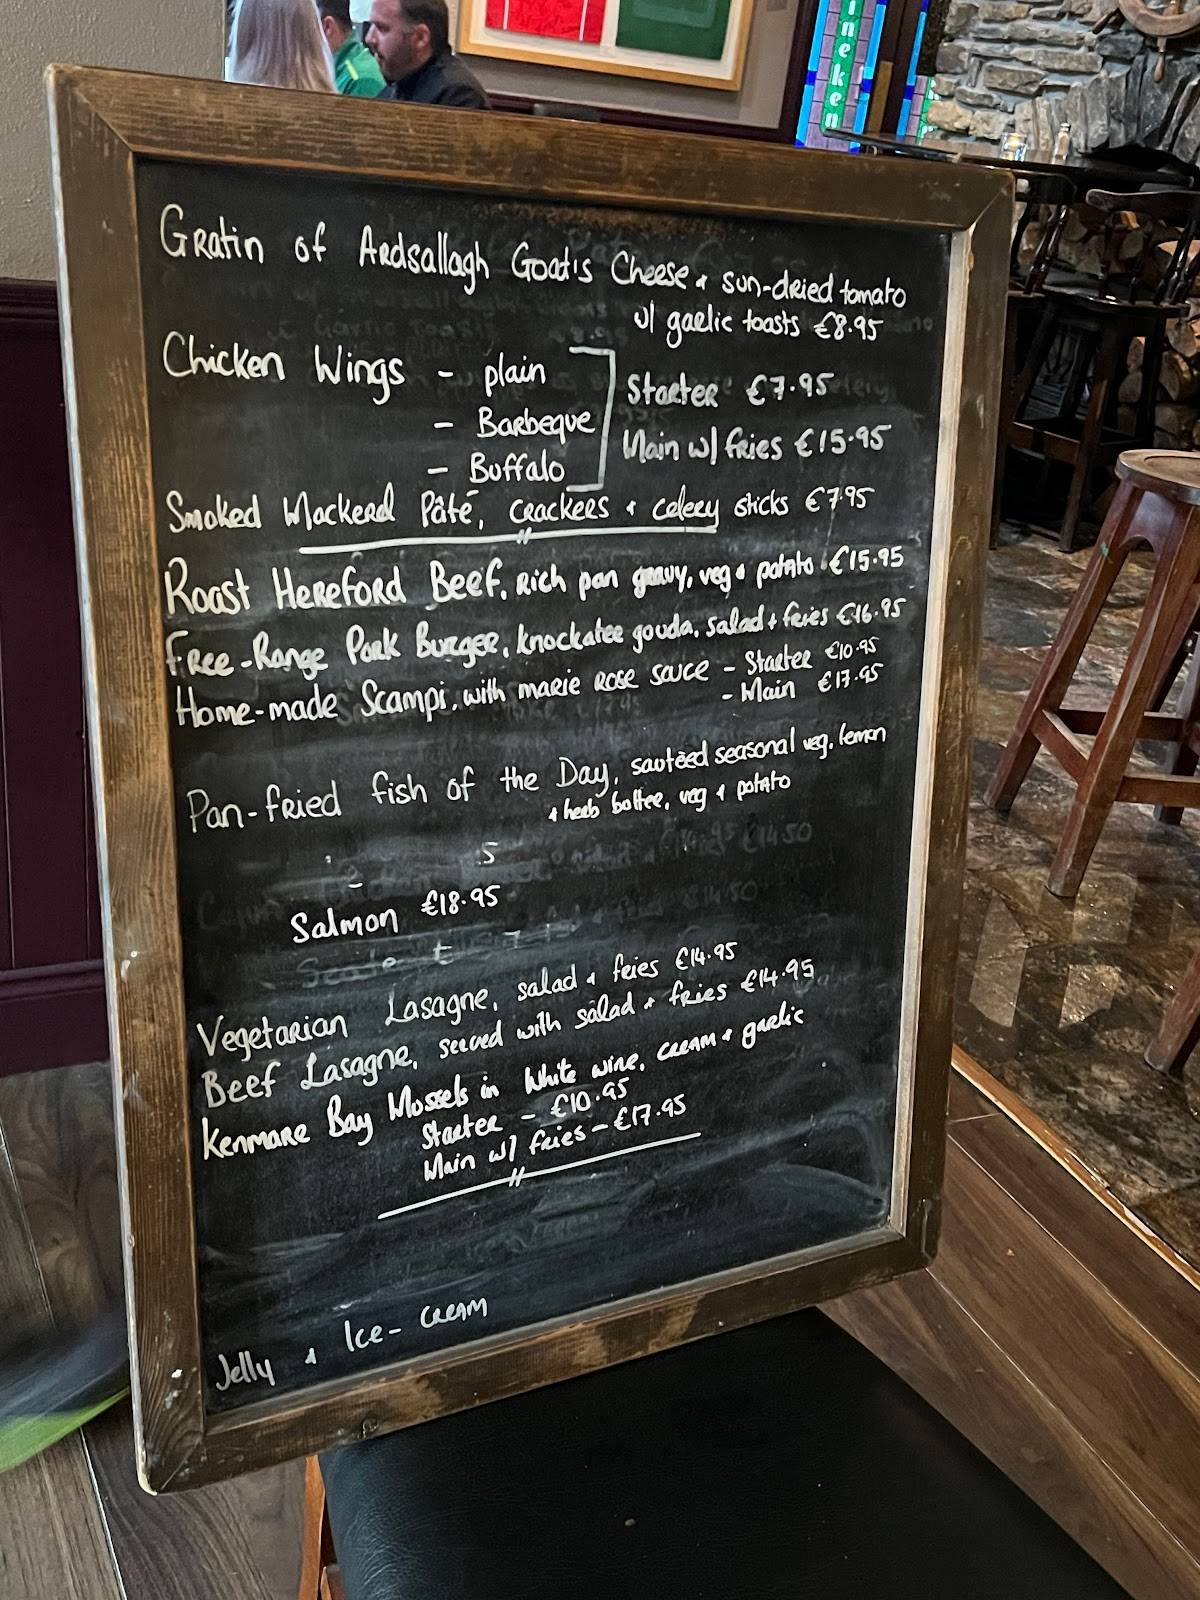 Gratin of Ardsallagh Goat's Cheese & sun-dried tomato
w/ garlic toasts €8.95
Chicken Wings - plain
- Barbeque
- Buffalo
Starter €7.95
Main w/ fries €15.95
Smoked Mackerel Pâté, crackers & celery sticks €7.95
Roast Hereford Beef, Rich pan gravy, veg & potato €15.95
Free-Range Pork Burger, knockatee gouda, salad & fries €16.95
Home-made Scampi, with marie rose sauce - Starter €10.95
- Main €17.95
Pan-fried fish of the Day, sauteèd seasonal veg, lemon
& herb butter, veg & potato
Salmon €18.95
Vegetarian Lasagne, salad & fries €14.95
Beef Lasagne, served with salad & fries €14.95
Kenmare Bay Mussels in White wine, cream & garlic
Starter - €10.95
Main w/ fries - €17.95
Jelly & Ice-cream
ineken